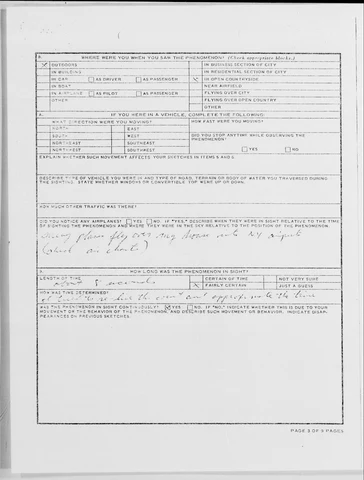 WHERE WERE YOU WHEN YOU SAW THE PHENOMENON? (Check appropriate blocks.)
X OUTDOORS
IN BUSINESS SECTION OF CITY
IN BUILDING
IN RESIDENTIAL SECTION OF CITY
IN CAR AS DRIVER AS PASSENGER
X IN OPEN COUNTRYSIDE
IN BOAT
NEAR AIRFIELD
IN AIRPLANE AS PILOT AS PASSENGER
FLYING OVER CITY
OTHER
FLYING OVER OPEN COUNTRY
OTHER
IF YOU WERE IN A VEHICLE, COMPLETE THE FOLLOWING:
WHAT DIRECTION WERE YOU MOVING?
HOW FAST WERE YOU MOVING?
NORTH EAST
SOUTH WEST
DID YOU STOP ANYTIME WHILE OBSERVING THE PHENOMENON?
NORTHEAST SOUTHEAST
NORTHWEST SOUTHWEST
YES NO
EXPLAIN WHETHER SUCH MOVEMENT AFFECTS YOUR SKETCHES IN ITEMS 5 AND 6.
DESCRIBE TYPE OF VEHICLE YOU WERE IN AND TYPE OF ROAD, TERRAIN OR BODY OF WATER YOU TRAVERSED DURING THE SIGHTING. STATE WHETHER WINDOWS OR CONVERTIBLE TOP WERE UP OR DOWN.
HOW MUCH OTHER TRAFFIC WAS THERE?
DID YOU NOTICE ANY AIRPLANES? YES NO. IF "YES," DESCRIBE WHEN THEY WERE IN SIGHT RELATIVE TO THE TIME OF SIGHTING THE PHENOMENON AND WHERE THEY WERE IN THE SKY RELATIVE TO THE POSITION OF THE PHENOMENON.
many planes fly over my house
HOW LONG WAS THE PHENOMENON IN SIGHT?
LENGTH OF TIME
seconds
CERTAIN OF TIME
NOT VERY SURE
X FAIRLY CERTAIN
JUST A GUESS
HOW WAS TIME DETERMINED?
the time
WAS THE PHENOMENON IN SIGHT CONTINUOUSLY? YES NO. IF "NO," INDICATE WHETHER THIS IS DUE TO YOUR MOVEMENT OR THE BEHAVIOR OF THE PHENOMENON, AND DESCRIBE SUCH MOVEMENT OR BEHAVIOR. INDICATE DISAPPEARANCES ON PREVIOUS SKETCHES.